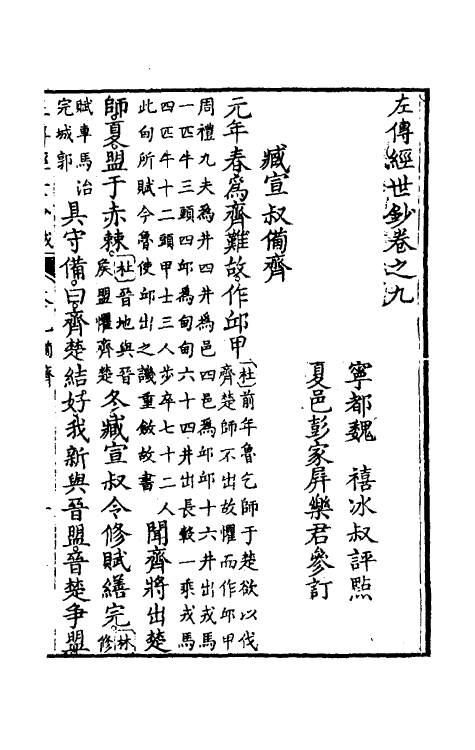 左傳經世鈔卷之九
寧都魏　禧冰叔評點
夏邑彭家屏樂君參訂
臧宣叔備齊
元年春爲齊難故作邱甲杜前年魯乞師于楚欲以伐
齊楚師不出故懼而作邱甲
周禮九夫為井四井爲邑四邑爲邱邱十六井出戎馬
一匹牛三頭四邱為甸甸六十四井出長轂一乘戎馬
四匹牛十二頭甲士三人步卒七十二人
此甸所賦今魯使邱出之譏重斂故書
聞齊將出楚
師夏盟于赤棘杜晉地與晉
侯盟懼齊楚
冬臧宣叔令修賦繕完林修
賦車馬治
完城郭
具守備曰齊楚結好我新與晉盟晉楚爭盟